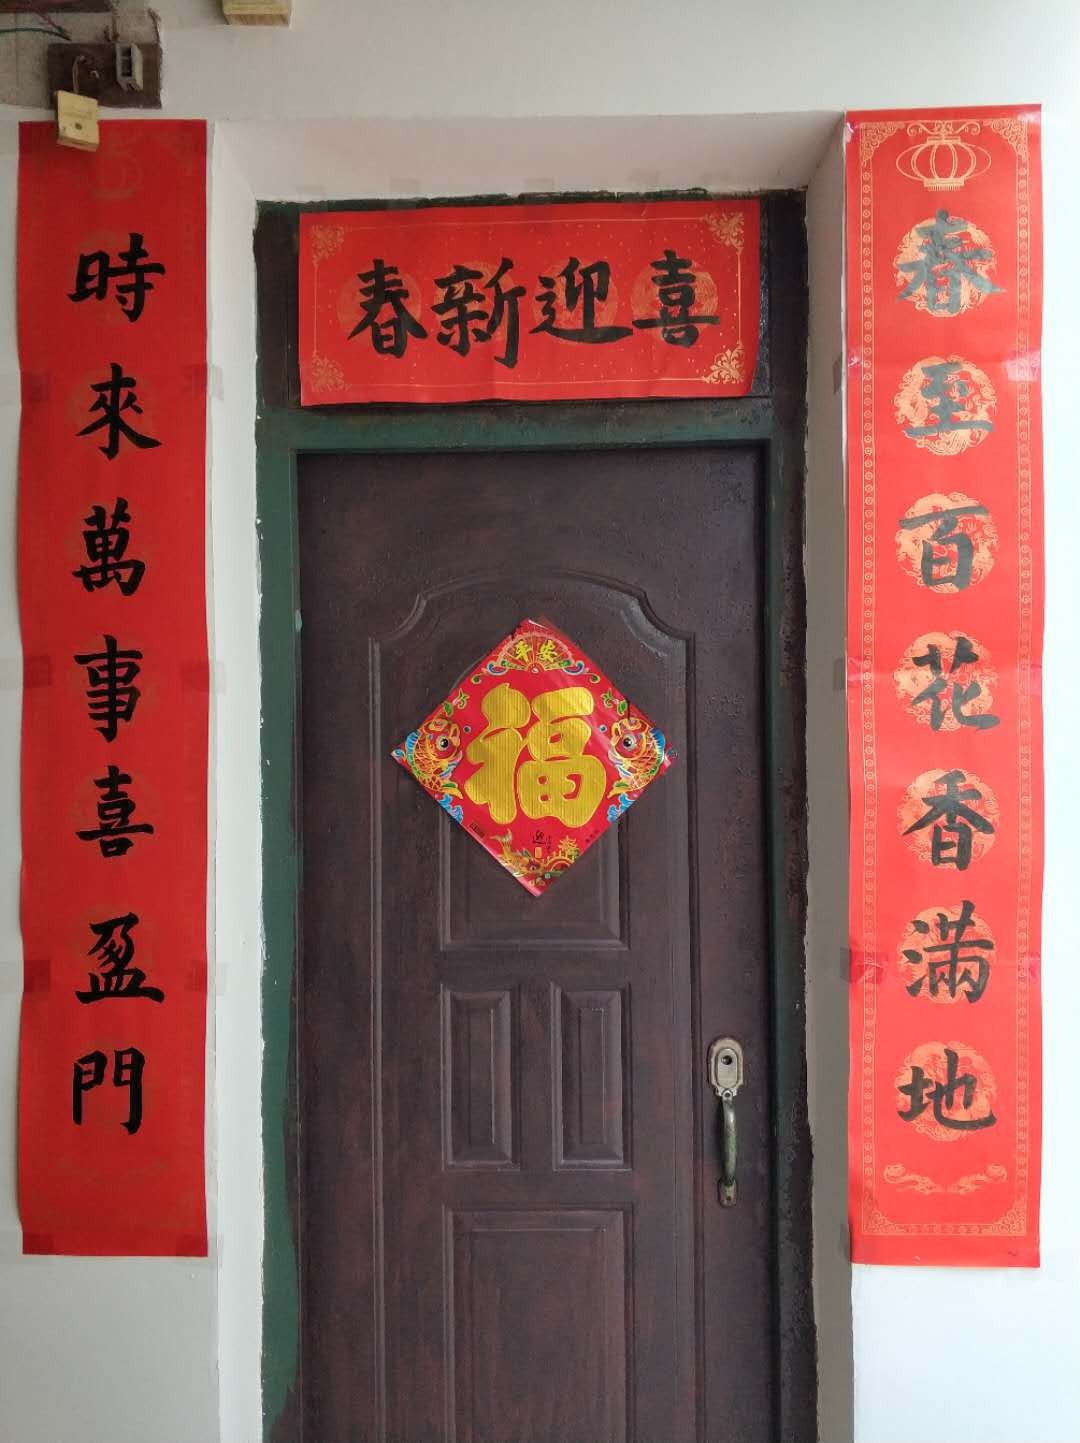 喜迎新春
春至百花香滿地
時來萬事喜盈門
平安
福
迎